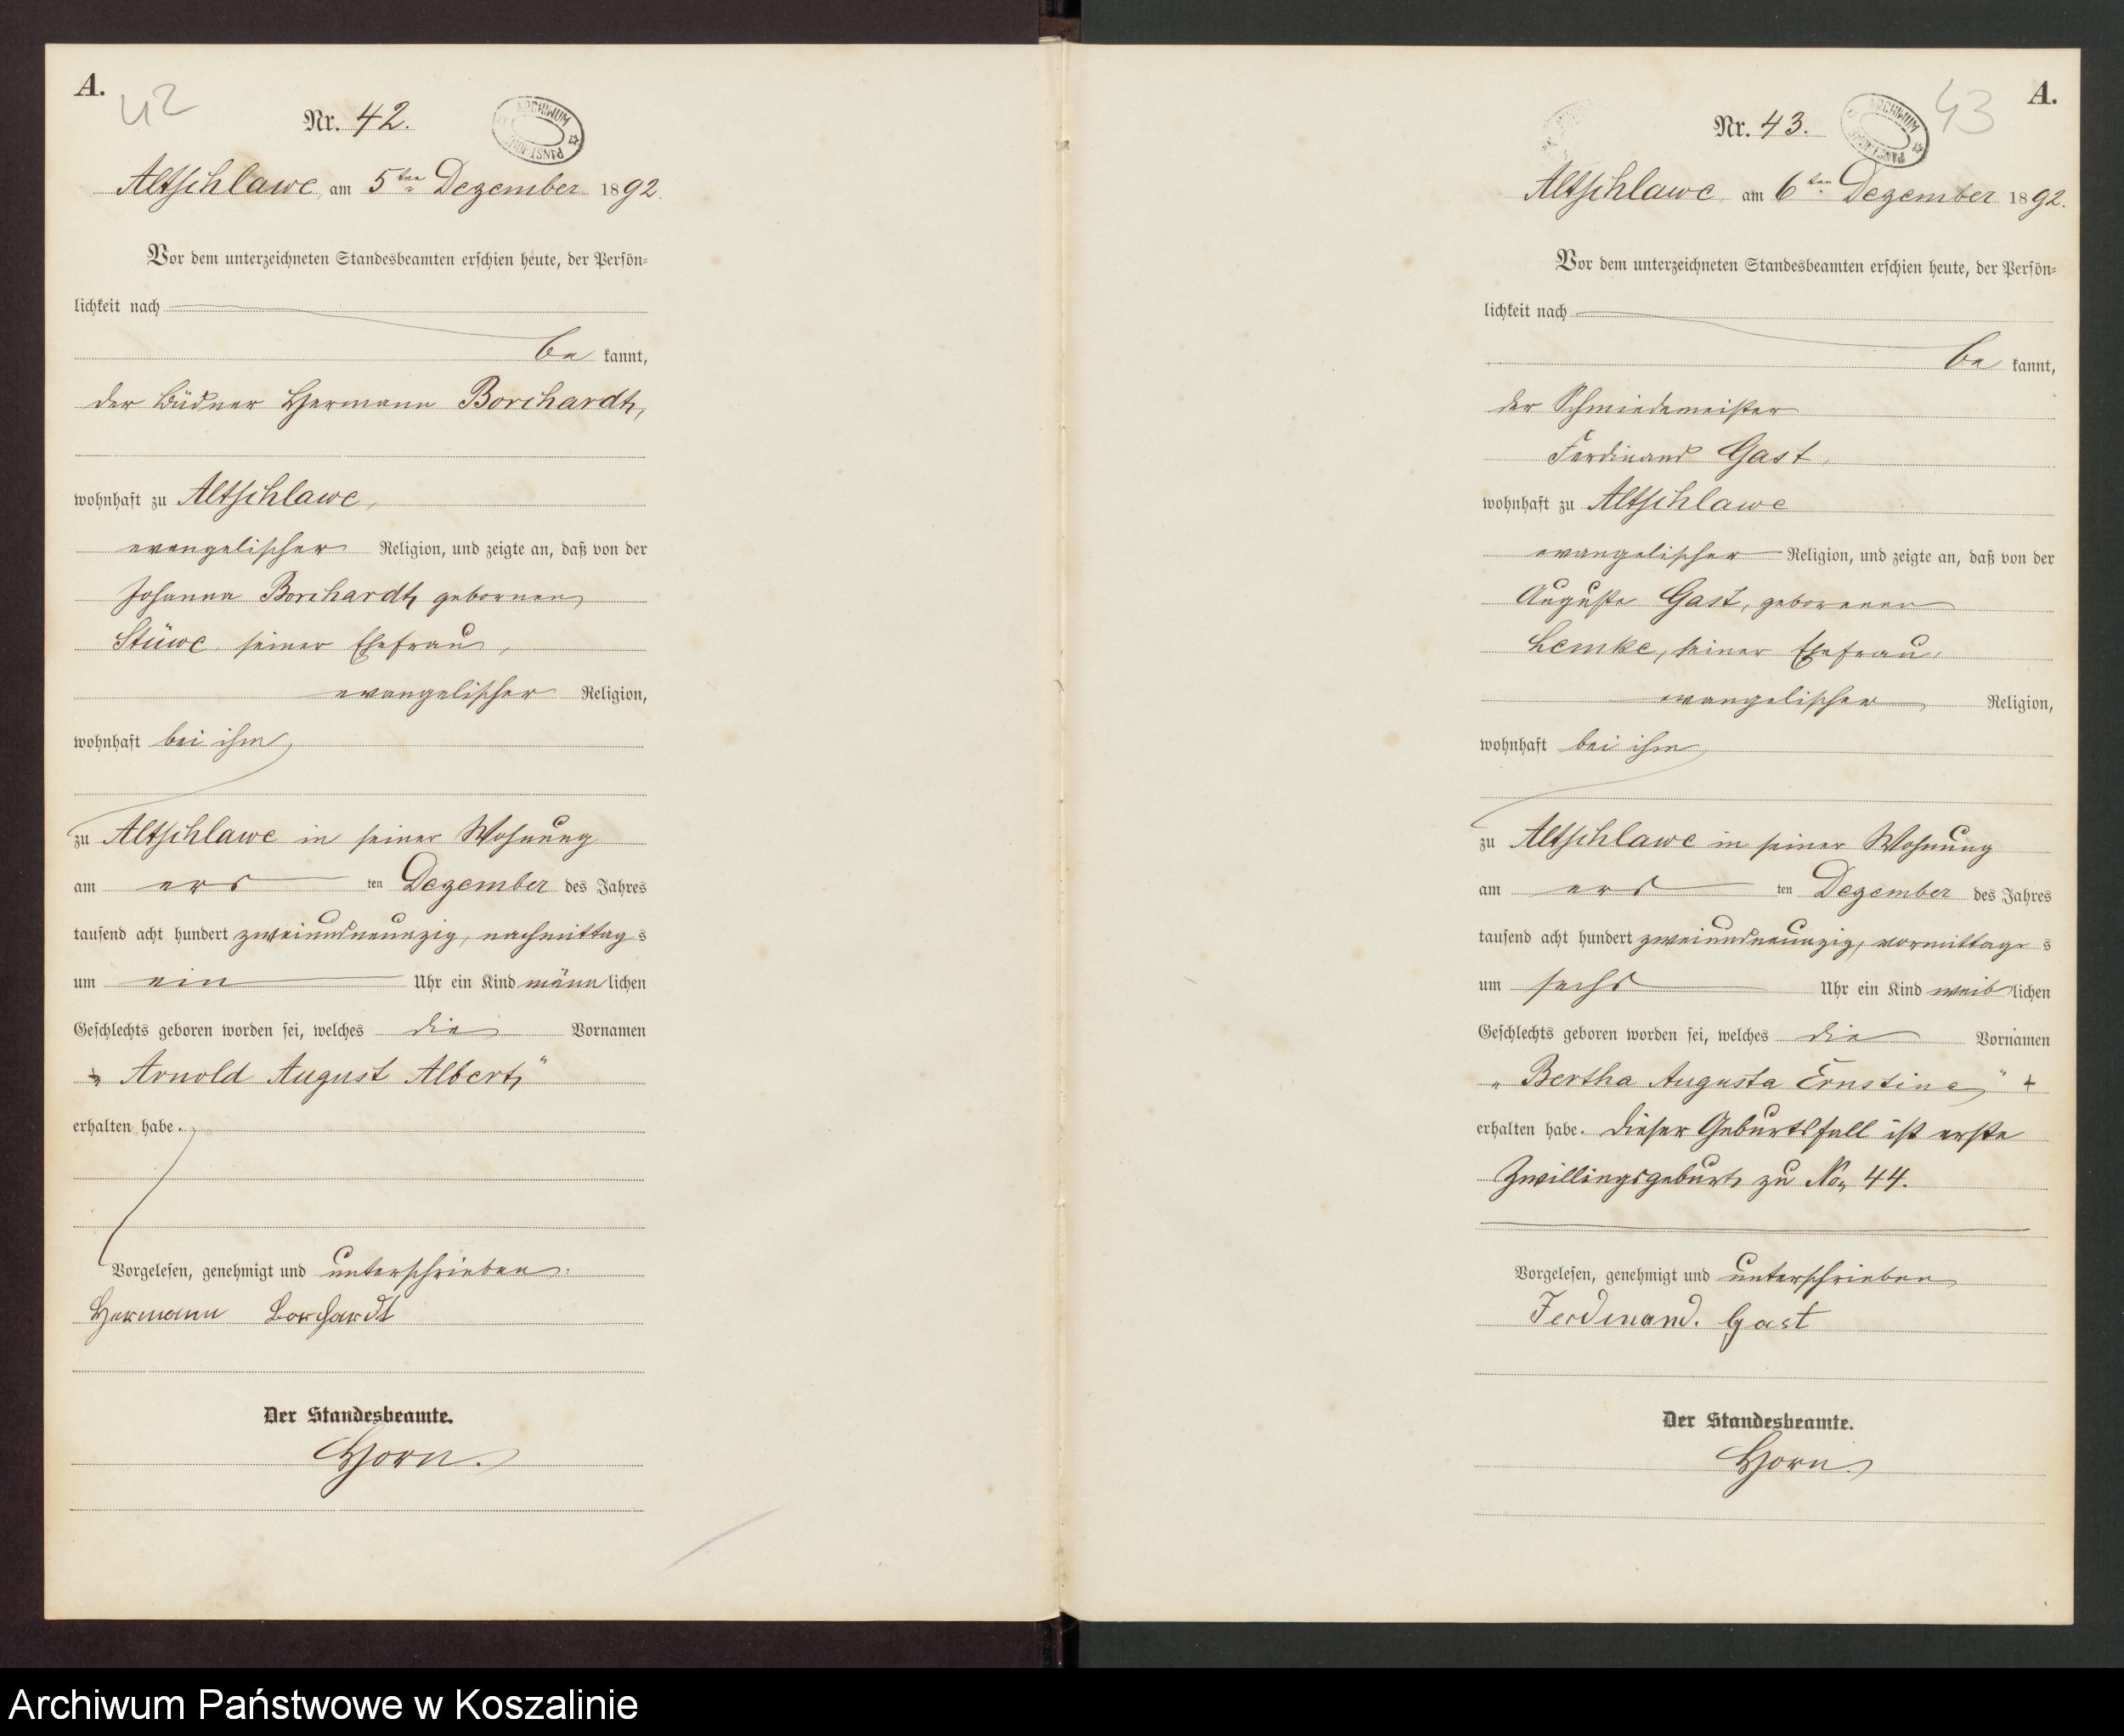 A.
42
Nr. 42.
ARCHIWUM PAŃSTWOWE
Altschlawe, am 5ten Dezember 1892.
Vor dem unterzeichneten Standesbeamten erschien heute, der Persön=
lichkeit nach
be kannt,
der Büdner Hermann Borchardt,
wohnhaft zu Altschlawe,
evangelischer Religion, und zeigte an, daß von der
Johanna Borchardt, geborenen
Stüwe, seiner Ehefrau,
evangelischer Religion,
wohnhaft bei ihm,
zu Altschlawe in seiner Wohnung
am ers ten Dezember des Jahres
tausend acht hundert zweiundneunzig, nachmittag s
um ein Uhr ein Kind männ lichen
Geschlechts geboren worden sei, welches die Vornamen
„Arnold August Albert,“
erhalten habe.
Vorgelesen, genehmigt und unterschrieben:
Hermann Borchardt
Der Standesbeamte.
Horn.
A.
43
Nr. 43.
ARCHIWUM PAŃSTWOWE
Altschlawe, am 6ten Dezember 1892.
Vor dem unterzeichneten Standesbeamten erschien heute, der Persön=
lichkeit nach
be kannt,
der Schmiedemeister
Ferdinand Gast,
wohnhaft zu Altschlawe
evangelischer Religion, und zeigte an, daß von der
Auguste Gast, geborenen
Lemke, seiner Ehefrau,
evangelischer Religion,
wohnhaft bei ihm,
zu Altschlawe in seiner Wohnung
am ers ten Dezember des Jahres
tausend acht hundert zweiundneunzig, vormittag s
um sechs Uhr ein Kind weib lichen
Geschlechts geboren worden sei, welches die Vornamen
„Bertha Augusta Ernstine,“ +
erhalten habe. Dieser Geburtsfall ist erste
Zwillingsgeburt zu No. 44.
Vorgelesen, genehmigt und unterschrieben
Ferdinand. Gast
Der Standesbeamte.
Horn.
Archiwum Państwowe w Koszalinie